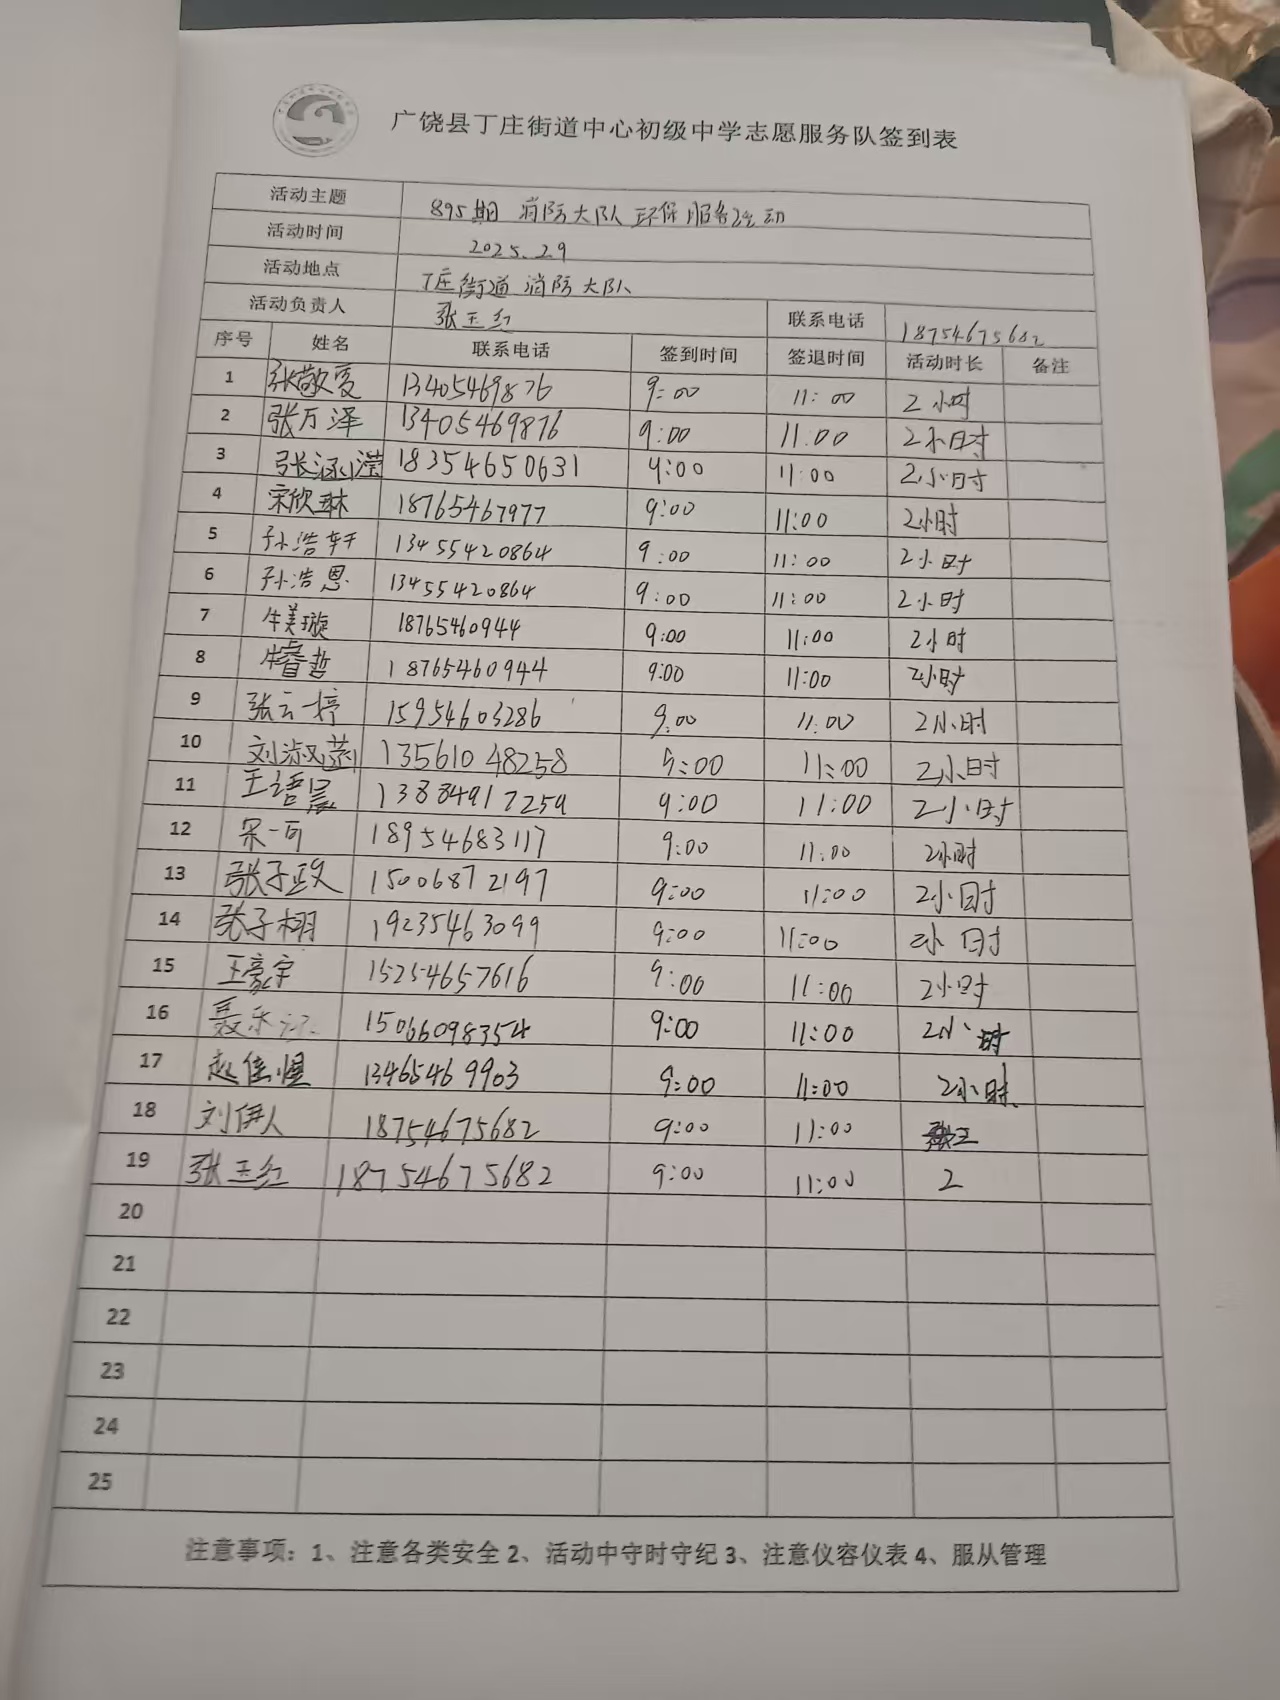 广饶县丁庄街道中心初级中学志愿服务队签到表
活动主题 895期 消防大队环保服务活动
活动时间 2025.2.9
活动地点 丁庄街道消防大队
活动负责人 张玉红 联系电话 18754675682
序号 姓名 联系电话 签到时间 签退时间 活动时长 备注
1 张敬爱 13405469876 9:00 11:00 2小时
2 张万泽 13405469876 9:00 11:00 2小时
3 张涵滢 18354650631 9:00 11:00 2小时
4 宋欣琳 18765467977 9:00 11:00 2小时
5 孙浩轩 13455420864 9:00 11:00 2小时
6 孙浩恩 13455420864 9:00 11:00 2小时
7 牛美璇 18765460944 9:00 11:00 2小时
8 牛睿哲 18765460944 9:00 11:00 2小时
9 张云婷 15954603286 9:00 11:00 2小时
10 刘淑 13561048258 9:00 11:00 2小时
11 王语晨 13884917259 9:00 11:00 2小时
12 宋一可 18954683117 9:00 11:00 2小时
13 张子政 15006872197 9:00 11:00 2小时
14 张子栩 19235463099 9:00 11:00 2小时
15 王豪宇 15254657616 9:00 11:00 2小时
16 聂乐 15066098354 9:00 11:00 2小时
17 赵佳惺 13465469903 9:00 11:00 2小时
18 刘伊人 18754675682 9:00 11:00
19 张玉红 18754675682 9:00 11:00 2
20
21
22
23
24
25
注意事项：1、注意各类安全 2、活动中守时守纪 3、注意仪容仪表 4、服从管理